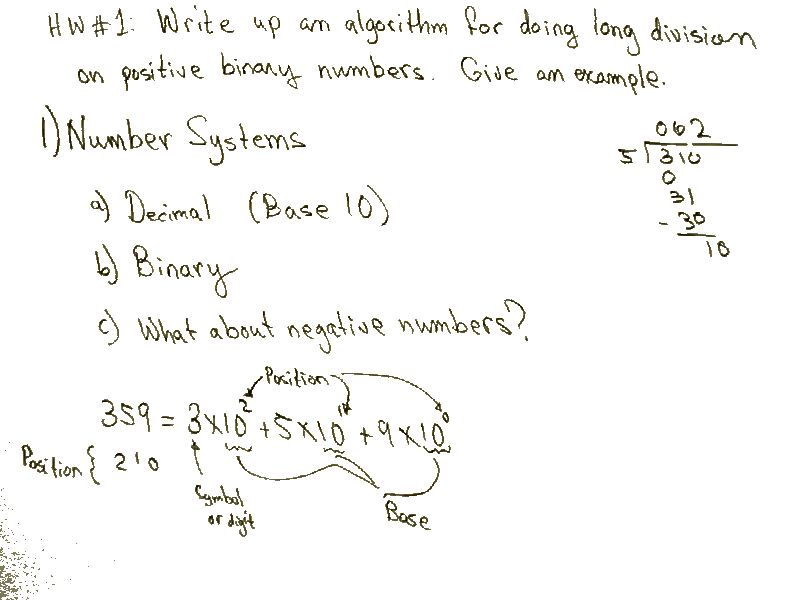 HW#1: Write up an algorithm for doing long division
on positive binary numbers. Give an example.
1) Number Systems
a) Decimal (Base 10)
b) Binary
c) What about negative numbers?
062
5 310
0
31
- 30
10
Position
359 = 3×10² + 5×10¹ + 9×10⁰
Position { 2 1 0
Symbol
or digit
Base